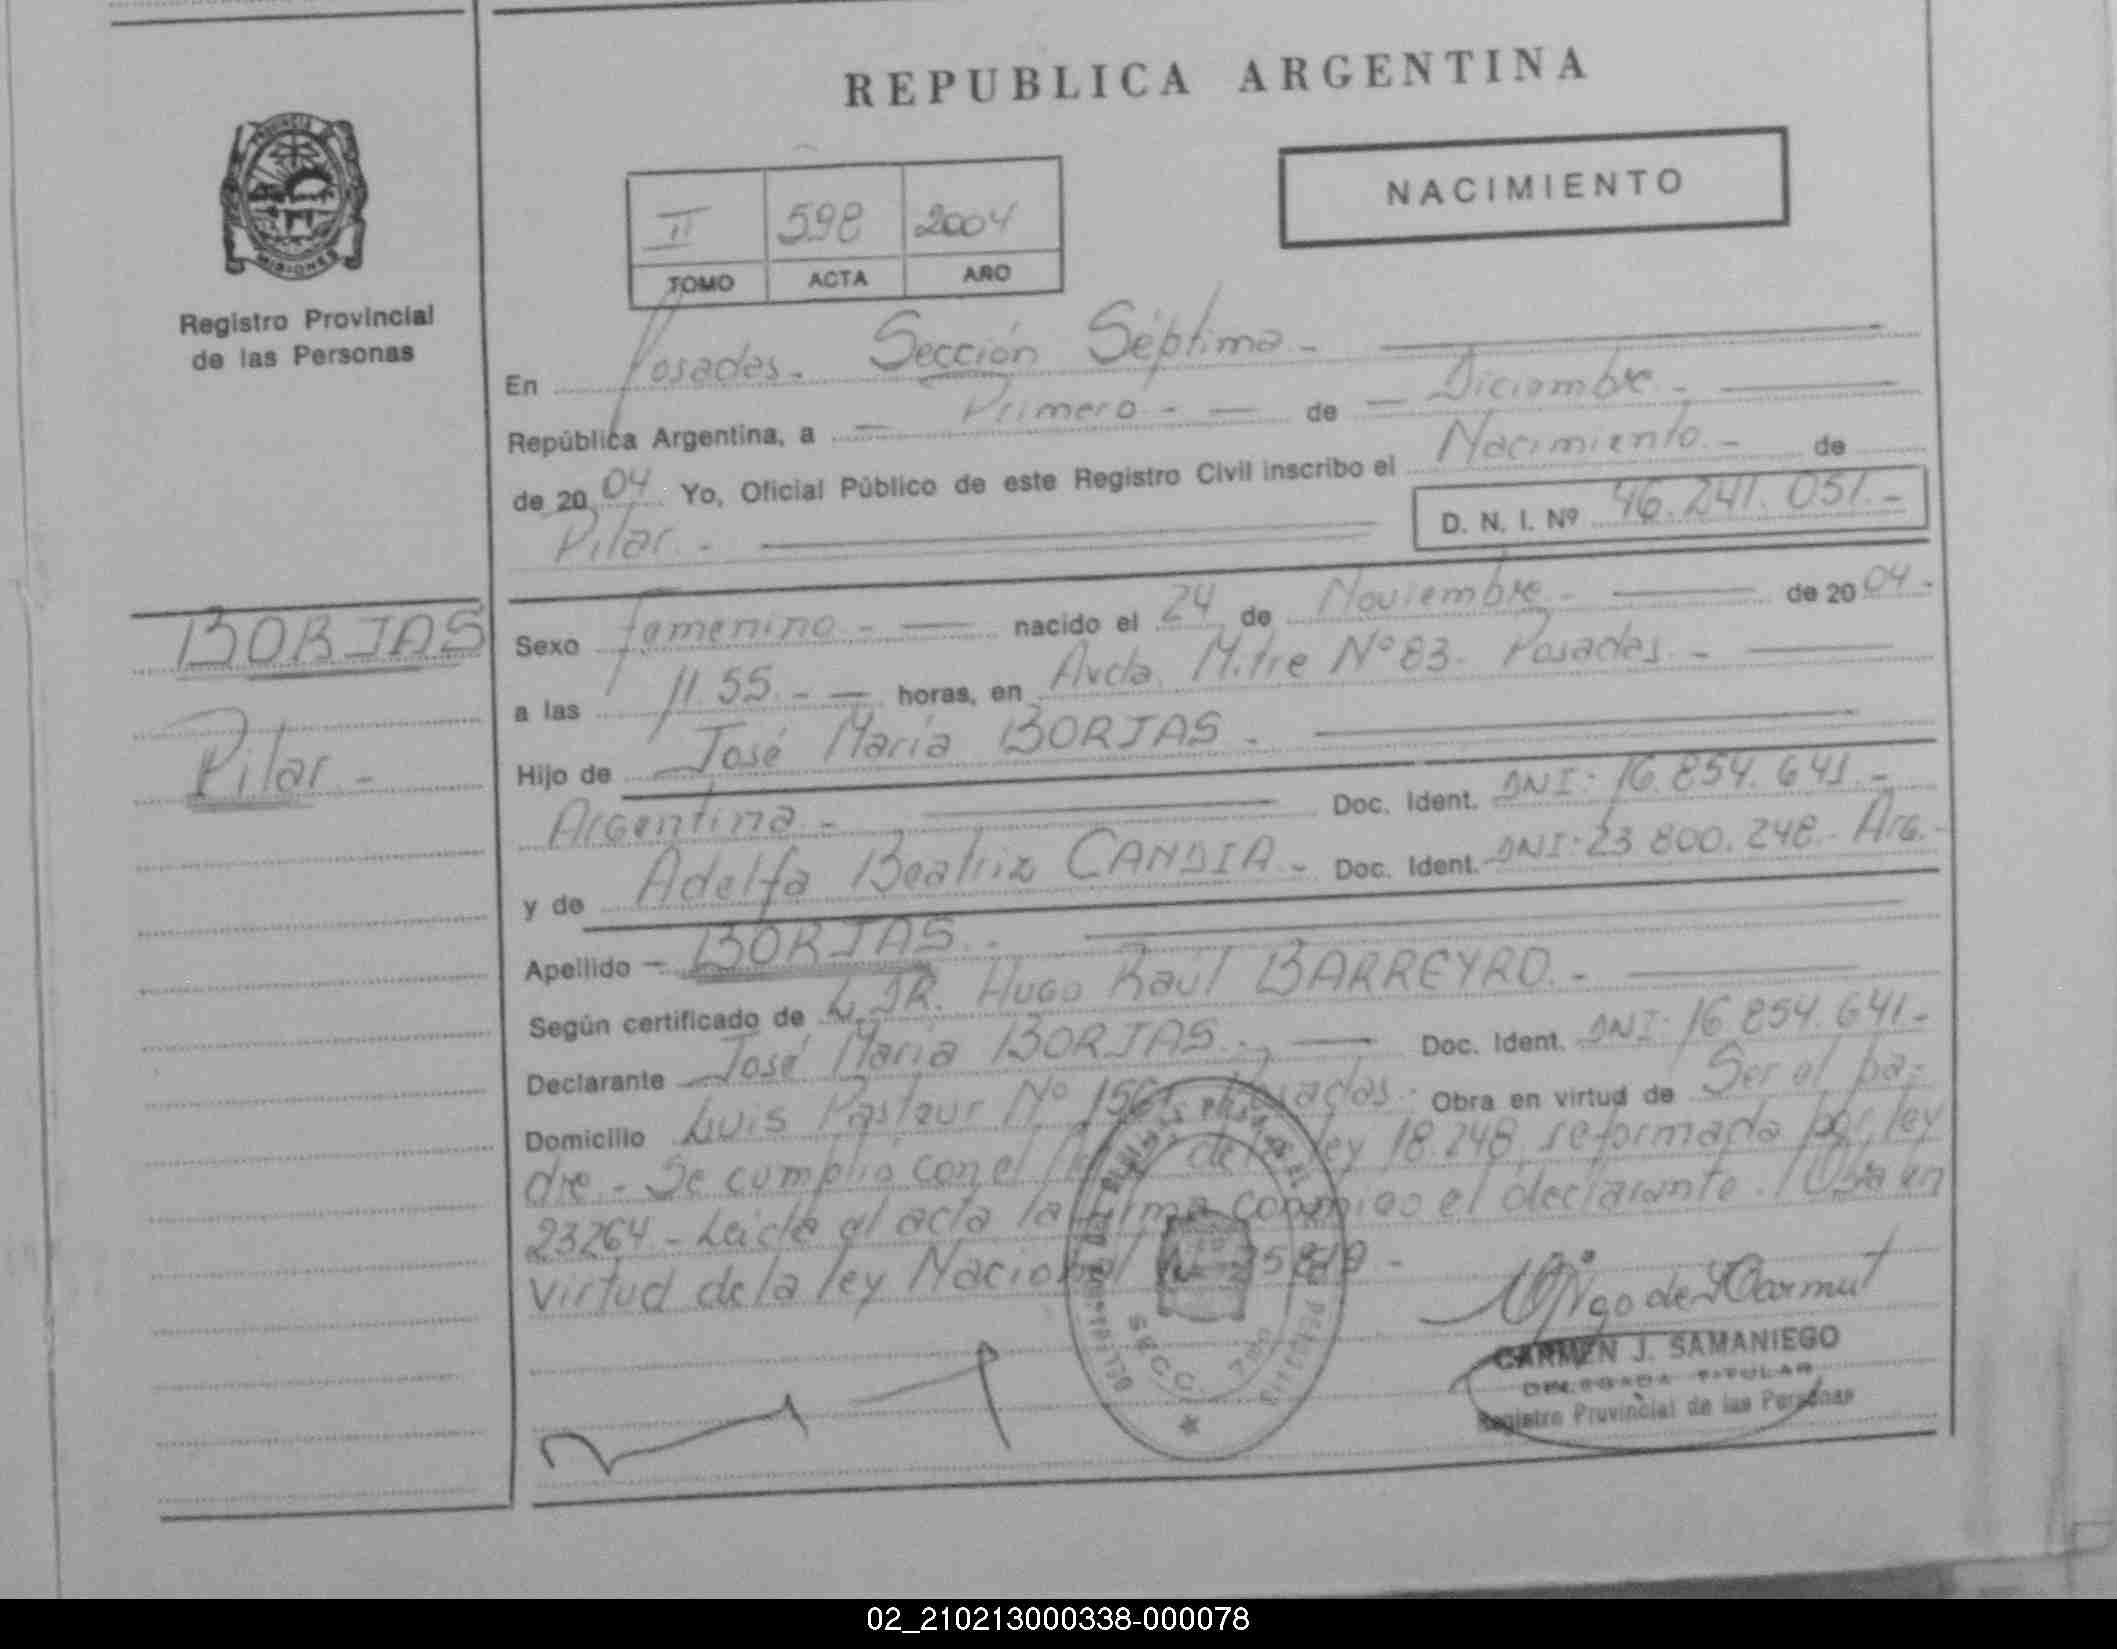 REPUBLICA ARGENTINA
PROVINCIA DE MISIONES
Registro Provincial
de las Personas
NACIMIENTO
II 598 2004
TOMO ACTA AÑO
En Posadas. Sección Séptima.-
República Argentina, a Primero - de Diciembre.-
de 2004 Yo, Oficial Público de este Registro Civil inscribo el Nacimiento.- de
Pilar.-
D. N. I. Nº 46.241.051.-
BORJAS
Pilar.-
Sexo femenino.- nacido el 24 de Noviembre.- de 2004.-
a las 11.55.- horas, en Avda. Mitre Nº 83. Posadas.-
Hijo de José María BORJAS.-
Argentina.- Doc. Ident. DNI: 16.854.641.-
y de Adelfa Beatriz CANDIA.- Doc. Ident. DNI: 23 800.248. Arg.-
Apellido - BORJAS.-
Según certificado de DR. Hugo Raúl BARREYRO.-
Declarante José María BORJAS.- Doc. Ident. DNI: 16 854.641.-
Domicilio Luis Pasteur Nº Posadas. Obra en virtud de Ser el pa-
dre.- Se cumplió con el de ley 18.248, reformada por ley
23264 - Leída el acta la firma conmigo el declarante. Obra en
virtud de la ley Nacional
SECC. 7ma
CARMEN J. SAMANIEGO
DELEGADA TITULAR
Registro Provincial de las Personas
02_210213000338-000078